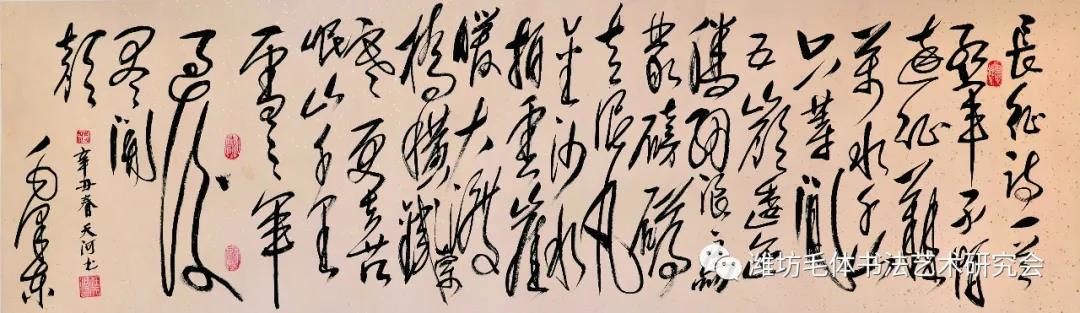 長征诗一首
红軍不怕
遠征難
萬水千山
只等閒
五嶺逶迤
腾细浪乌
蒙磅礴
走泥丸
金沙水
拍雲崖
暖大渡
橋横鐵索
寒更喜
岷山千里
雪三軍
過後
尽開
颜
毛泽东
辛丑春天河书
潍坊毛体书法艺术研究会